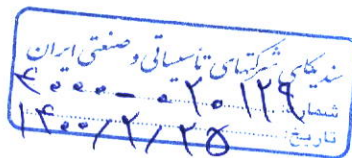 سندیکای شرکتهای تأسیساتی و صنعتی ایران
شماره: ۴۰۰۰-۰۲۰۱۲۹
تاریخ: ۱۴۰۰/۲/۲۵